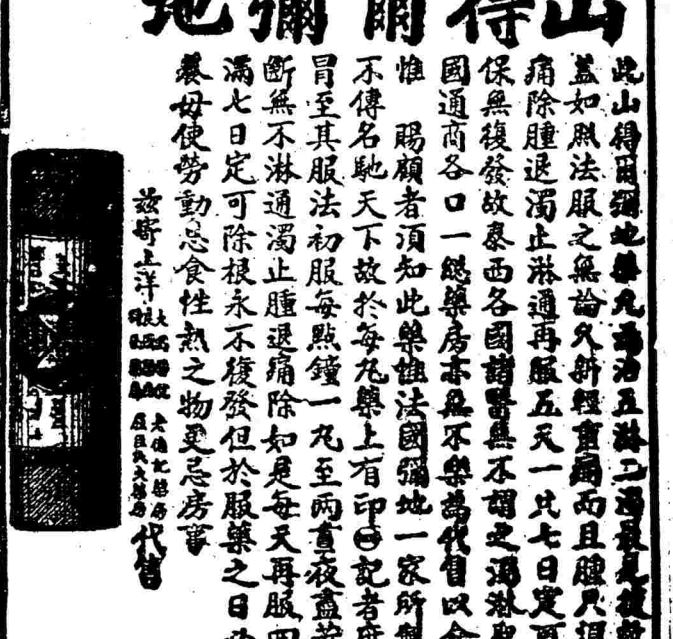 山得爾彌地
此山得爾彌地藥凡為治五淋二濁最見
蓋如照法服之無論久新輕重痛而且腫只
痛除腫退濁止淋通再服五天一共七日定可
保無復發故泰西各國諸醫無不謂之濁淋
國通商各口一總藥房亦無不樂為代售以
惟 賜顧者須知此藥惟法國彌地一家所製
不傳名馳天下故於每丸藥上有印記者庶
冒至其服法初服每點鐘一丸至兩晝夜盡
斷無不淋通濁止腫退痛除如是每天再服四
滿七日定可除根永不復發但於服藥之日
養毋使勞動忌食性熱之物更忌房事
茲寄上洋 老德記藥房 屈臣氏大藥房 代售